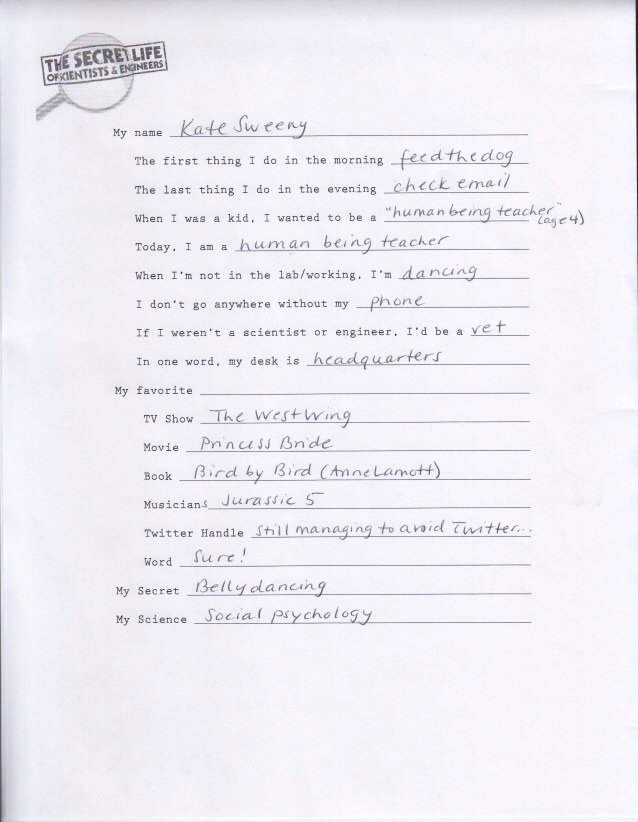 THE SECRET LIFE
OF SCIENTISTS & ENGINEERS
My name Kate Sweeny
The first thing I do in the morning feed the dog
The last thing I do in the evening check email
When I was a kid, I wanted to be a "human being teacher" (age 4)
Today, I am a human being teacher
When I'm not in the lab/working, I'm dancing
I don't go anywhere without my phone
If I weren't a scientist or engineer, I'd be a vet
In one word, my desk is headquarters
My favorite
TV Show The West Wing
Movie Princess Bride
Book Bird by Bird (Anne Lamott)
Musicians Jurassic 5
Twitter Handle still managing to avoid Twitter...
Word Sure!
My Secret Belly dancing
My Science Social psychology